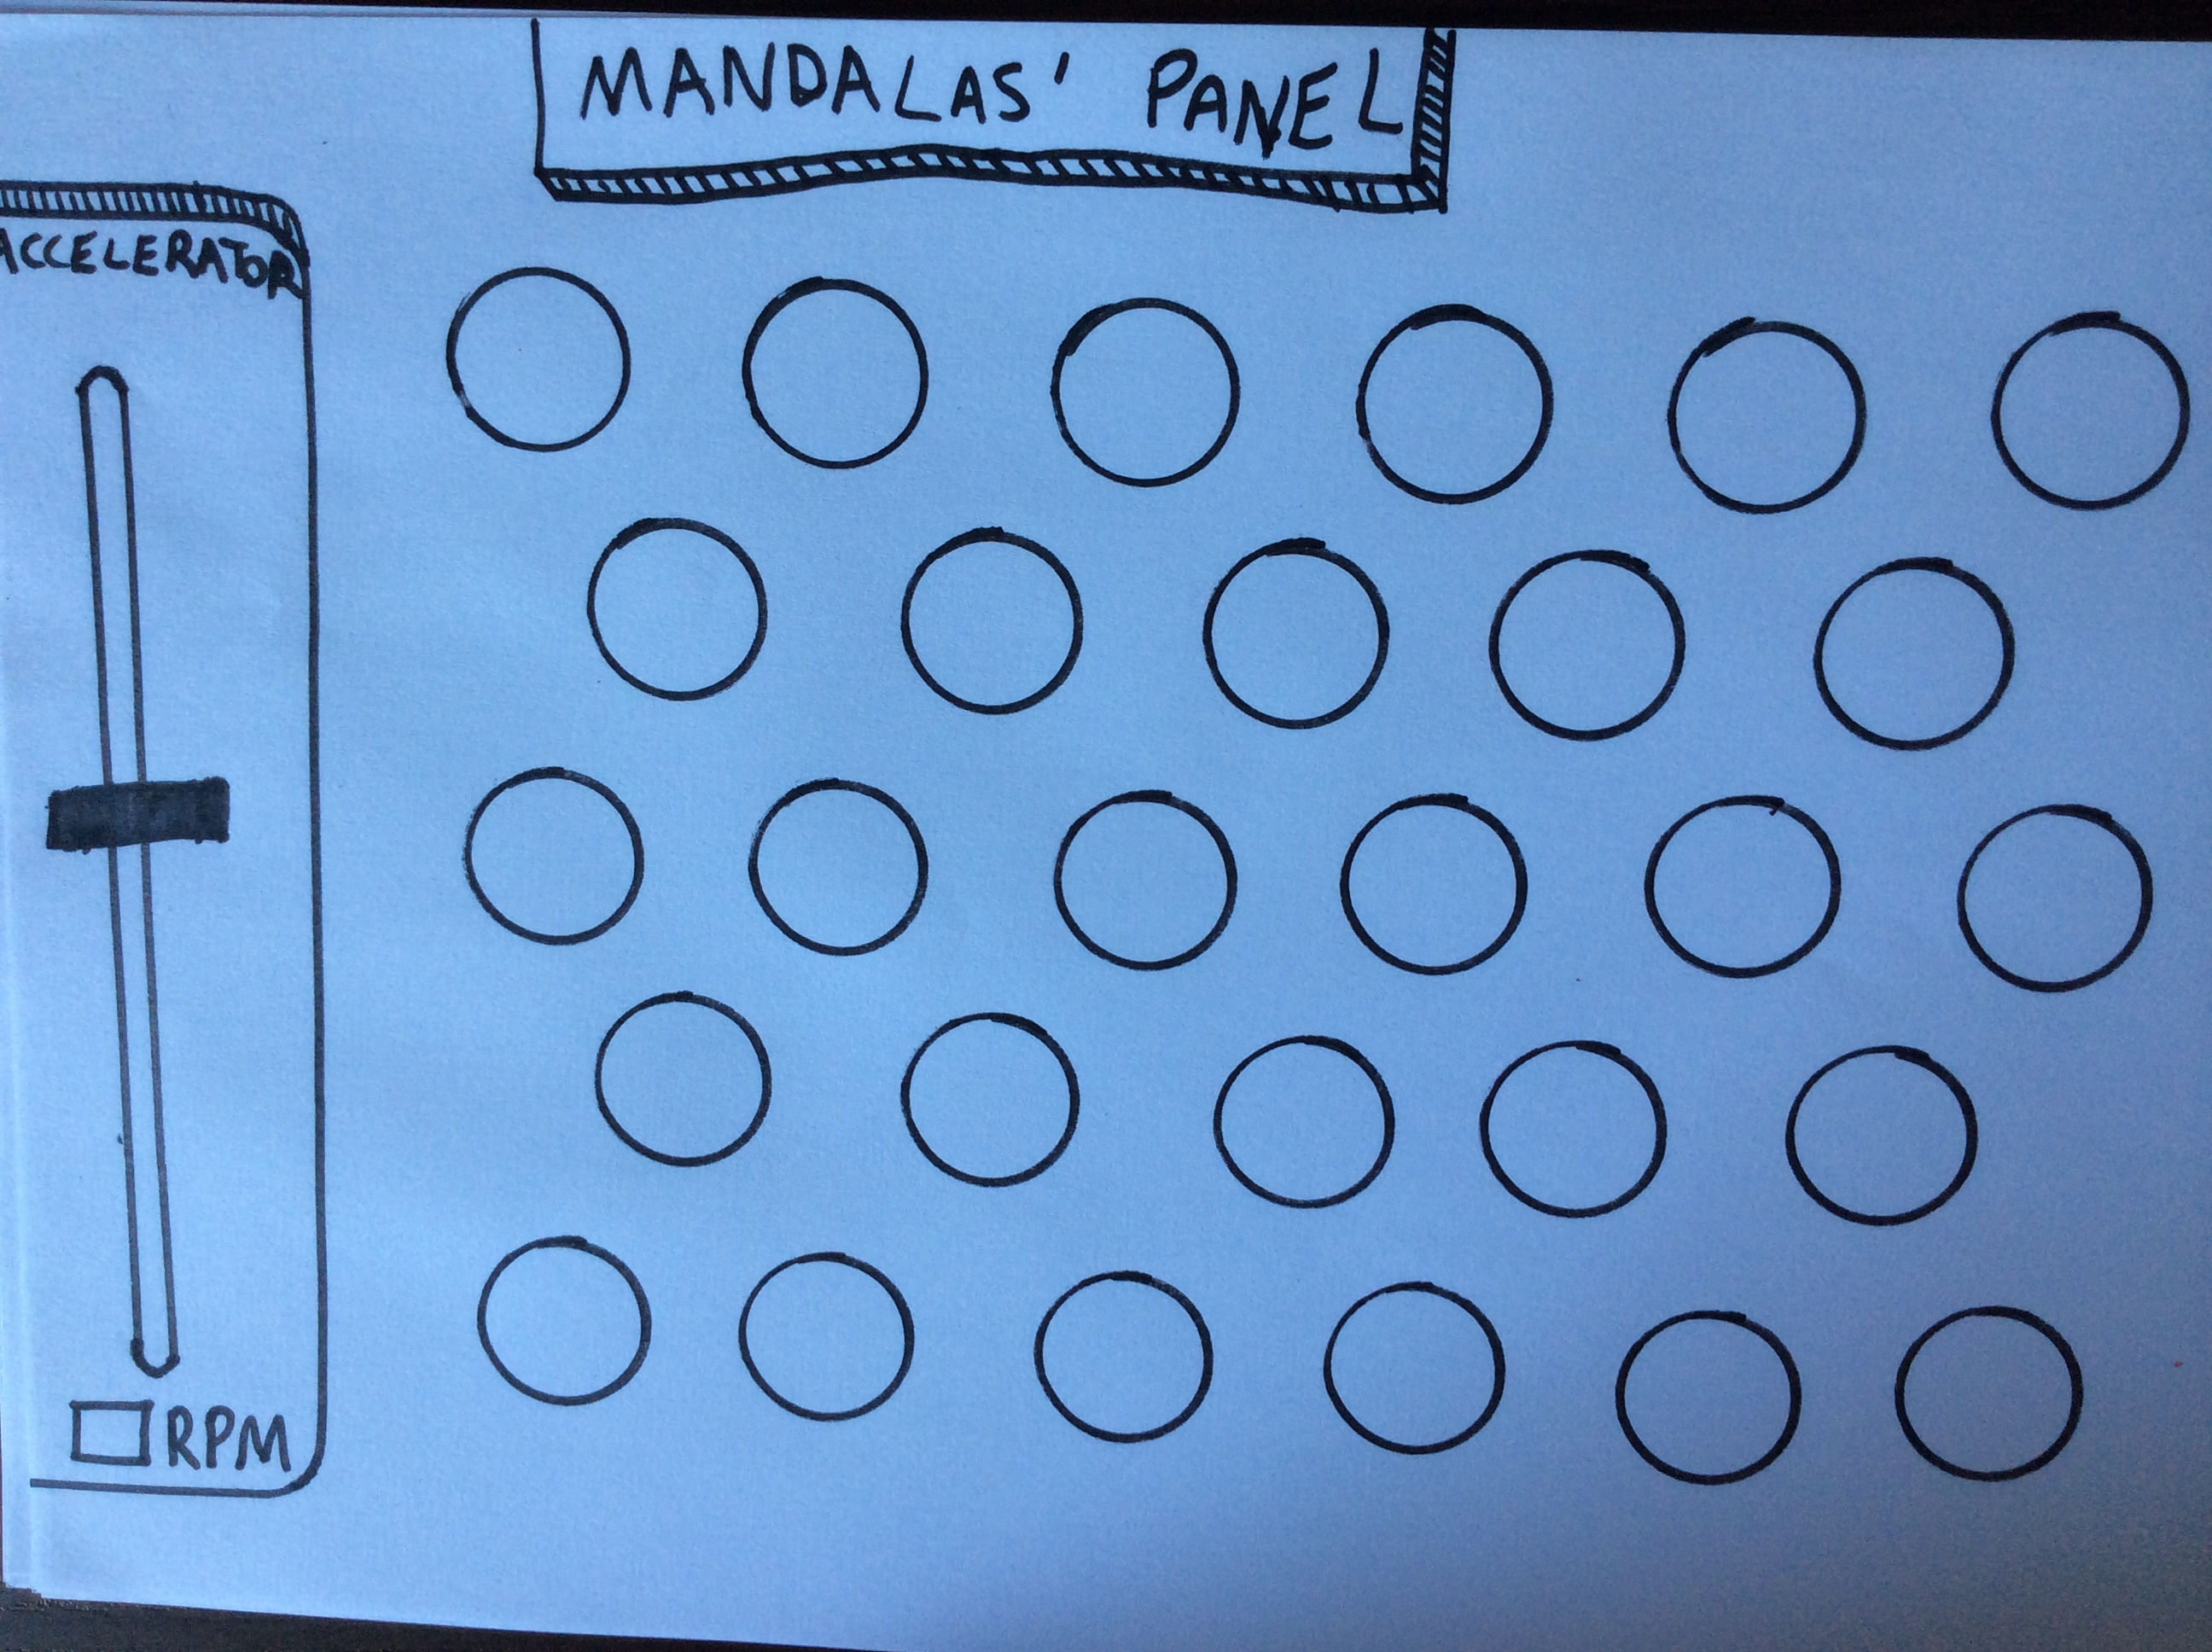 MANDALAS' PANEL
ACCELERATOR
RPM